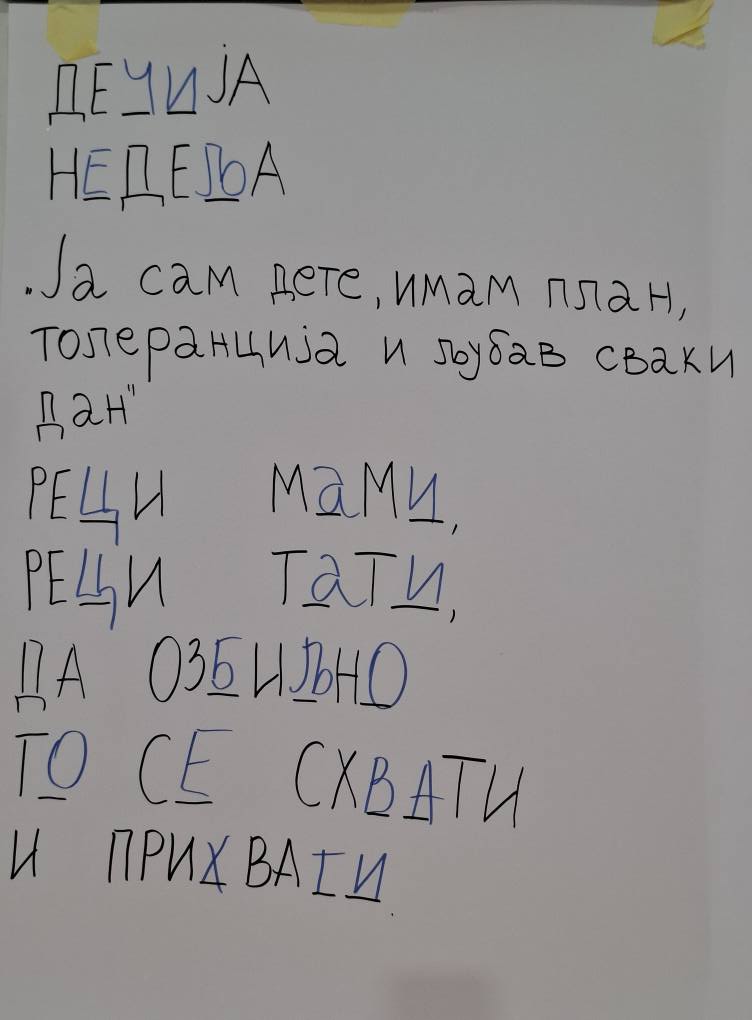 ДЕЧИЈА
НЕДЕЉА
„Ја сам дете, имам план,
толеранција и љубав сваки
дан"
РЕЦИ МаМИ,
РЕЦИ ТаТИ,
ДА ОЗБИЉНО
ТО СЕ СХВАТИ
И ПРИХВАТИ.